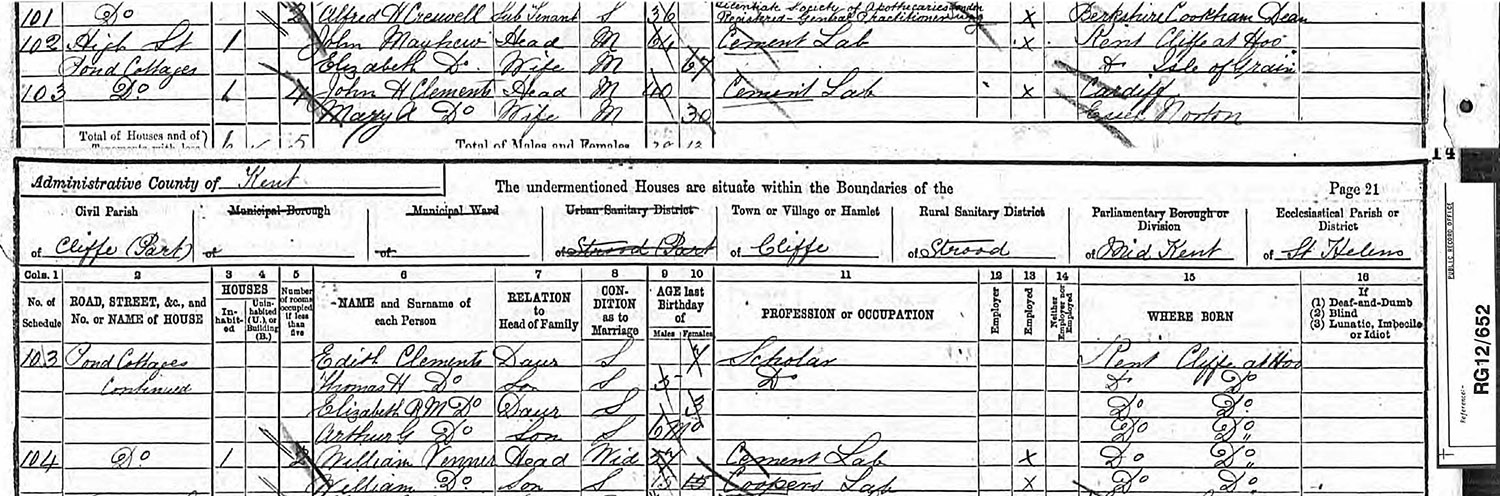 Licentiate Society of Apothecaries London
101 Do 2 Alfred H Creswell Sub Tenant S 36 Registered General Practitioner X Berkshire Cookham Dean
102 High St 1 John Mayhew Head M 64 Cement Lab X Kent Cliffe at Hoo
Pond Cottages Elizabeth Do Wife M 67 Do Isle of Grain
103 Do 1 4 John H Clements Head M 40 Cement Lab X Cardiff
Mary A Do Wife M 30 Essex Norton
Total of Houses and of 6 5 Total of Males and Females
14
Administrative County of Kent The undermentioned Houses are situate within the Boundaries of the Page 21
Civil Parish Municipal Borough Municipal Ward Urban Sanitary District Town or Village or Hamlet Rural Sanitary District Parliamentary Borough or Division Ecclesiastical Parish or District
of Cliffe (Part) of of of Strood Part of Cliffe of Strood of Mid Kent of St Helens
Cols. 1 2 3 4 5 6 7 8 9 10 11 12 13 14 15 16
No. of Schedule ROAD, STREET, &c., and No. or NAME of HOUSE HOUSES Inhabited Uninhabited (U.), or Building (B.) Number of rooms occupied if less than five NAME and Surname of each Person RELATION to Head of Family CONDITION as to Marriage AGE last Birthday of Males Females PROFESSION or OCCUPATION Employer Employed Neither Employer nor Employed WHERE BORN If (1) Deaf-and-Dumb (2) Blind (3) Lunatic, Imbecile or Idiot
103 Pond Cottages Edith Clements Daur S 7 Scholar Kent Cliffe at Hoo
Continued Thomas H Do Son S 5 Do Do Do
Elizabeth R M Do Daur S 3 Do Do
Arthur G Do Son S 6 Mo Do Do
104 Do 1 2 William Venner Head Wid Cement Lab X Do Do
William Do Son S 15 Coopers Lab X Do Do
PUBLIC RECORD OFFICE
Reference:-
RG12/652